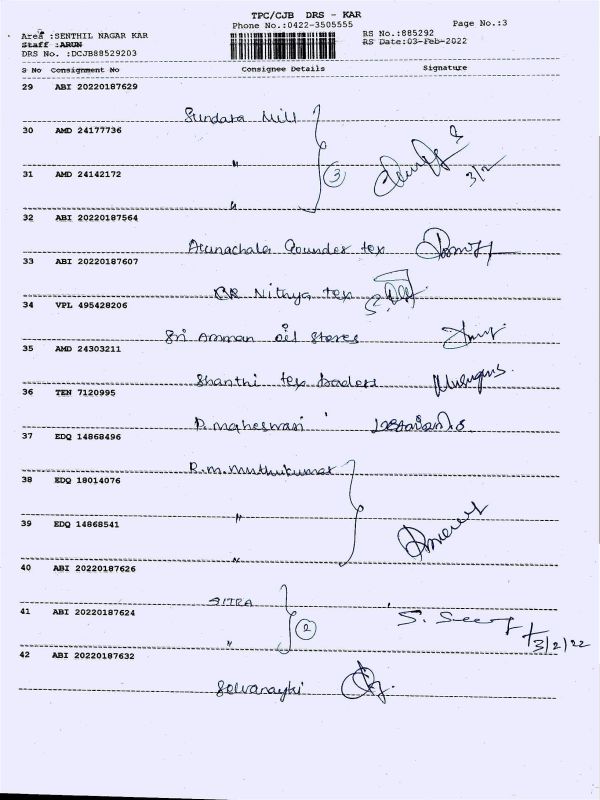 TPC/CJB DRS - KAR
Phone No.:0422-3505555
Page No.:3
Area :SENTHIL NAGAR KAR
RS No.:885292
Staff :ARUN
RS Date:03-Feb-2022
DRS No. :DCJB88529203
S No Consignment No Consignee Details Signature
29 ABI 20220187629
Sundara Mill
30 AMD 24177736
"
31 AMD 24142172
3
3/2
"
32 ABI 20220187564
Arunachala Gounder tex
33 ABI 20220187607
Nithya tex
34 VPL 495428206
Sri Amman oil stores
35 AMD 24303211
Shanthi tex traders
36 TEN 7120995
P. Maheswari
37 EDQ 14868496
R.m.muthukumar
38 EDQ 18014076
"
39 EDQ 14868541
"
40 ABI 20220187626
SITRA
41 ABI 20220187624
2
"
3/2/22
42 ABI 20220187632
Selvanayki